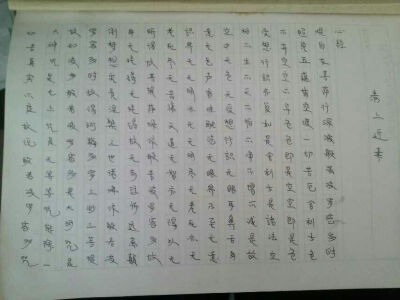 心经
观自在菩萨行深般若波罗密多时
照见五蕴皆空渡一切苦厄舍利子色
不异空空不异色色即是空空即是色
受想行识亦复如是舍利子是诸法空
相不生不灭不垢不净不增不减是故
空中无色无受想行识无眼耳鼻舌身
意无色声香味触法无眼界乃至无意
识界无无明亦无无明尽乃至无老死亦无
老死尽无苦集灭道无智亦无得以无
所得故菩提萨埵依般若波罗密多故
心无挂碍无挂碍故无有恐怖远离颠
倒梦想究竟涅槃三世诸佛依般若波
罗密多故得阿耨多罗三藐三菩提
故知般若波罗密多是大明咒是
大神咒是无上咒是无等等咒能除一
切苦真实不虚故说般若波罗密多咒